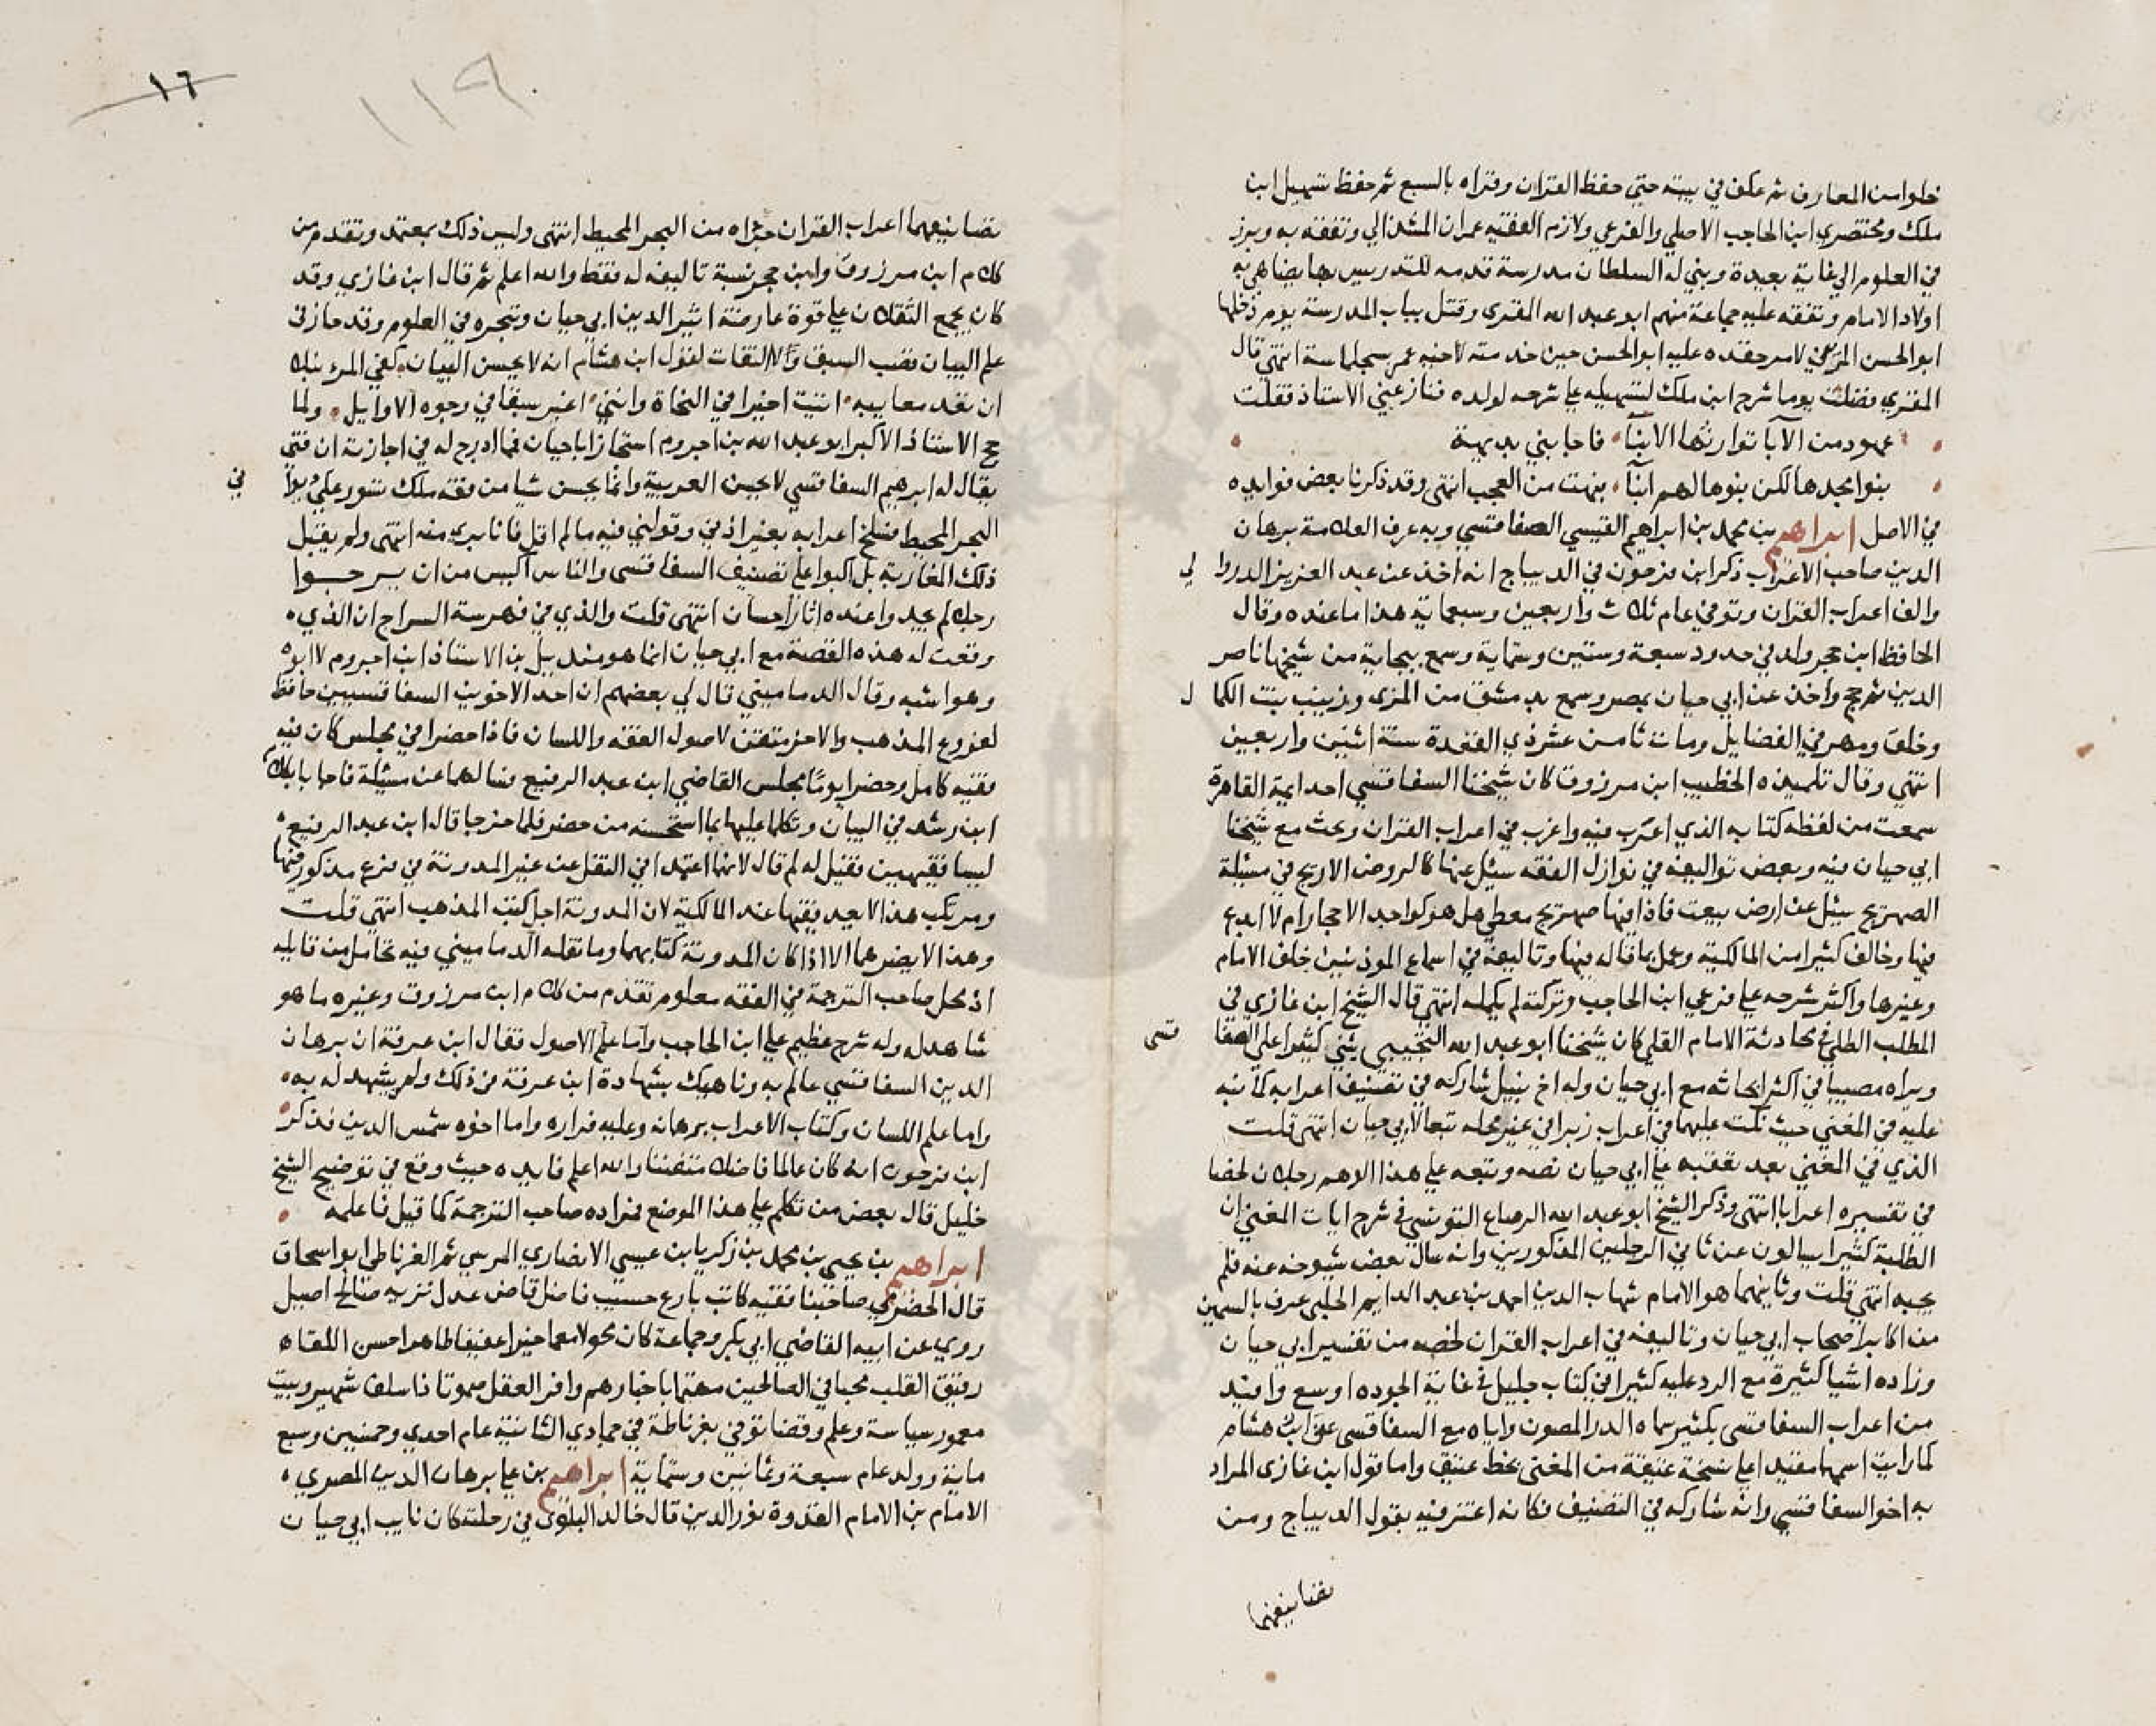 خلوا من المعارف ثم عكف في بيته حتي حفظ القران وقراه بالسبع ثم حفظ تسهيل ابن
ملك ومختصري ابن الحاجب الاصلي والفرعي ولازم الفقيه عمران المشذالي وتفقه به وبرز
في العلوم الي غاية بعيدة وبني له السلطان مدرسة قدمه للتدريس بها يضاهي به
اولاد الامام وتفقه عليه جماعة منهم ابو عبد الله المقري وقتل بباب المدرسة يوم دخلها
ابو الحسن المريني لامر حقده عليه ابو الحسن حين خدمته لاخيه عمر سجلماسة انتهي قال
المقري فضلت يوما شرح ابن ملك لتسهيله علي شرحه لولده فنازعني الاستاذ فقلت
عهود من الآبا توارثها الابنآ فاجابني بديهة
بنوا مجدها لكن بنوها لهم ابنآ فبهت من العجب انتهي وقد ذكرنا بعض فوايده
في الاصل ابراهيم بن محمد بن ابراهيم القيسي الصفاقسي وبه عرف العلامة برهان
الدين صاحب الاعراب ذكر ابن فرحون في الديباج انه اخذ عن عبد العزيز الدروا لي
والف اعراب القران وتوفي عام ثلاث واربعين وسبعماية هذا ما عنده وقال
الحافظ ابن حجر ولد في حدود سبعة وستين وستماية وسمع ببجاية من شيخها ناصر
الدين ثم حج واخذ عن ابي حيان بمصر وسمع بدمشق من المزي وزينب بنت الكما ل
وخلف ومهر في الفضايل ومات ثامن عشر ذي القعدة سنة اثنين واربعين
انتهي وقال تلميذه الخطيب ابن مرزوق كان شيخنا السفاقسي احد ايمة القاهرة
سمعت من لفظه كتابه الذي اعرب فيه واغرب في اعراب القران وبحث مع شيخنا
ابي حيان فيه وبعض تواليفه في نوازل الفقه سئل عنها كالروض الاريج في مسئلة
الصهريج سئل عن ارض بيعت فاذا فيها صهريج مغطي هل هو كواحد الاحجار ام لا ابدع
فيها وخالف كثيرا من المالكية وعمل بما قاله فيها وتاليفه في اسماع الموذنين خلف الامام
وغيرها واكثر شرحه علي فرعي ابن الحاجب وتركته لم يكمله انتهي قال الشيخ ابن غازي في
المطلب الطلي في محادثة الامام القلي كان شيخنا ابو عبد الله التجيبي يثني كثيرا علي الصفا قسي
ويراه مصيبا في اكثر ابحاثه مع ابي حيان وله اخ نبيل شاركه في تصنيف اعرابه كما نبه
عليه في المغني حيث نكت عليهما في اعراب زبرا في غير محله تبعا لابي حيان انتهي قلت
الذي في المغني بعد تعقبه علي ابي حيان نصه وتبعه علي هذا الوهم رجلان لخصا
في تفسيره اعرابا انتهي وذكر الشيخ ابو عبد الله الرصاع التونسي في شرح ايات المغني ان
الطلبة كثيرا يسالون عن ثاني الرجلين المذكورين وانه سال بعض شيوخه عنه فلم
يجبه انتهي قلت وثانيهما هو الامام شهاب الدين احمد بن عبد الدايم الحلبي عرف بالسمين
من اكابر اصحاب ابي حيان وتاليفه في اعراب القران لخصه من تفسير ابي حيان
وزاده اشيا كثيرة مع الرد عليه كثيرا في كتاب جليل في غاية الجوده اوسع وافيد
من اعراب السفاقسي بكثير سماه الدر المصون واياه مع السفاقسي عنى ابن هشام
كما رايت اسمهما مقيدا علي نسخة عتيقة من المغني بخط عتيق واما قول ابن غازي المراد
به اخو السفاقسي وانه شاركه في التصنيف فكانه اغتر فيه بقول الديباج ومن
تصانيفهما
١٦
١١٩
تصانيفهما اعراب القران جزاه من البحر المحيط انتهي وليس ذلك بمعتمد وتقدم من
كلام ابن مرزوق وابن حجر نسبة تاليفه له فقط والله اعلم ثم قال ابن غازي وقد
كان يجمع الثقلان علي قوة عارضة اثير الدين ابي حيان وتبحره في العلوم وقد حاز في
علم البيان قصب السبق ولا التفات لقول ابن هشام انه لا يحسن البيان كفي المرء نبلا
ان تعد معايبه اتيت اخيرا في النحاة وانني اغبر سبقا في وجوه الاوايل ولما
حج الاستاذ الاكبر ابو عبد الله بن اجروم استجاز ابا حيان فما ادرج له في اجازته ان فتى
يقال له ابرهيم السفاقسي لا يحسن العربية وانما يحسن شيا من فقه ملك تسور علي ديوا في
البحر المحيط فسلخ اعرابه بغير اذني وقولني فيه مالم اقل فانا بري منه انتهي ولم يقبل
ذلك المغاربة بل اكبوا علي تصنيف السفاقسي والناس اكيس من ان يرحبوا
رجلا لم يجدوا عنده اثار احسان انتهي قلت والذي في فهرسة السراج ان الذي
وقعت له هذه القصة مع ابي حيان انما هو منديل بن الاستاذ ابن اجروم لا ابوه
وهو اشبه وقال الدماميني قال لي بعضهم ان احد الاخوين السفاقسيين حافظ
لفروع المذهب والاخر متقن لاصول الفقه واللسان فاذا حضرا في مجلس كان فيه
فقيه كامل وحضرا يوما مجلس القاضي ابن عبد الرفيع فسالهما عن مسئلة فاجابا بكلام
ابن رشد في البيان وتكلما عليها بما استحسنه من حضر فلما خرجا قال ابن عبد الرفيع
ليسا فقيهين فقيل له لم قال لانهما اعتمدا في النقل عن غير المدونة في فرع مذكور فيها
ومرتكب هذا لا يعد فقيها عند المالكية لان المدونة اجل كتب المذهب انتهي قلت
وهذا لا يضرهما الا اذا كان المدونة كتابهما وما نقله الدماميني فيه تحامل من قايله
اذ محل صاحب الترجمة في الفقه معلوم تقدم من كلام ابن مرزوق وغيره ما هو
شاهد له وله شرح عظيم علي ابن الحاجب واما علم الاصول فقال ابن عرفة ان برهان
الدين السفاقسي عالم به وناهيك بشهادة ابن عرفة في ذلك ولم يشهد له به
واما علم اللسان وكتاب الاعراب برهانه وعليه قراره واما اخوه شمس الدين فذكر
ابن فرحون انه كان عالما فاضلا متفننا والله اعلم فايده حيث وقع في توضيح الشيخ
خليل قال بعض من تكلم علي هذا الموضع فمراده صاحب الترجمة كما قيل فاعلمه
ابراهيم بن يحيي بن محمد بن زكريا بن عيسي الانصاري المرسي ثم الغرناطي ابو اسحاق
قال الحضرمي صاحبنا فقيه كاتب بارع حسيب فاضل قاض عدل نزيه صالح اصيل
روي عن ابيه القاضي ابي بكر وجماعة كان خيرا عفيفا طاهرا حسن اللقاه
رقيق القلب محبا في الصالحين مهتما باخبارهم وافر العقل صموتا ذا سلف شهير وبيت
معمور سياسة وعلم وقضا توفي بغرناطة في جمادي الثانية عام احدي وخمسين وسبع
ماية وولد عام سبعة وثمانين وستماية ابراهيم بن علي برهان الدين المصري
الامام بن الامام القدوة نور الدين قال خالد البلوي في رحلته كان نايب ابي حيان